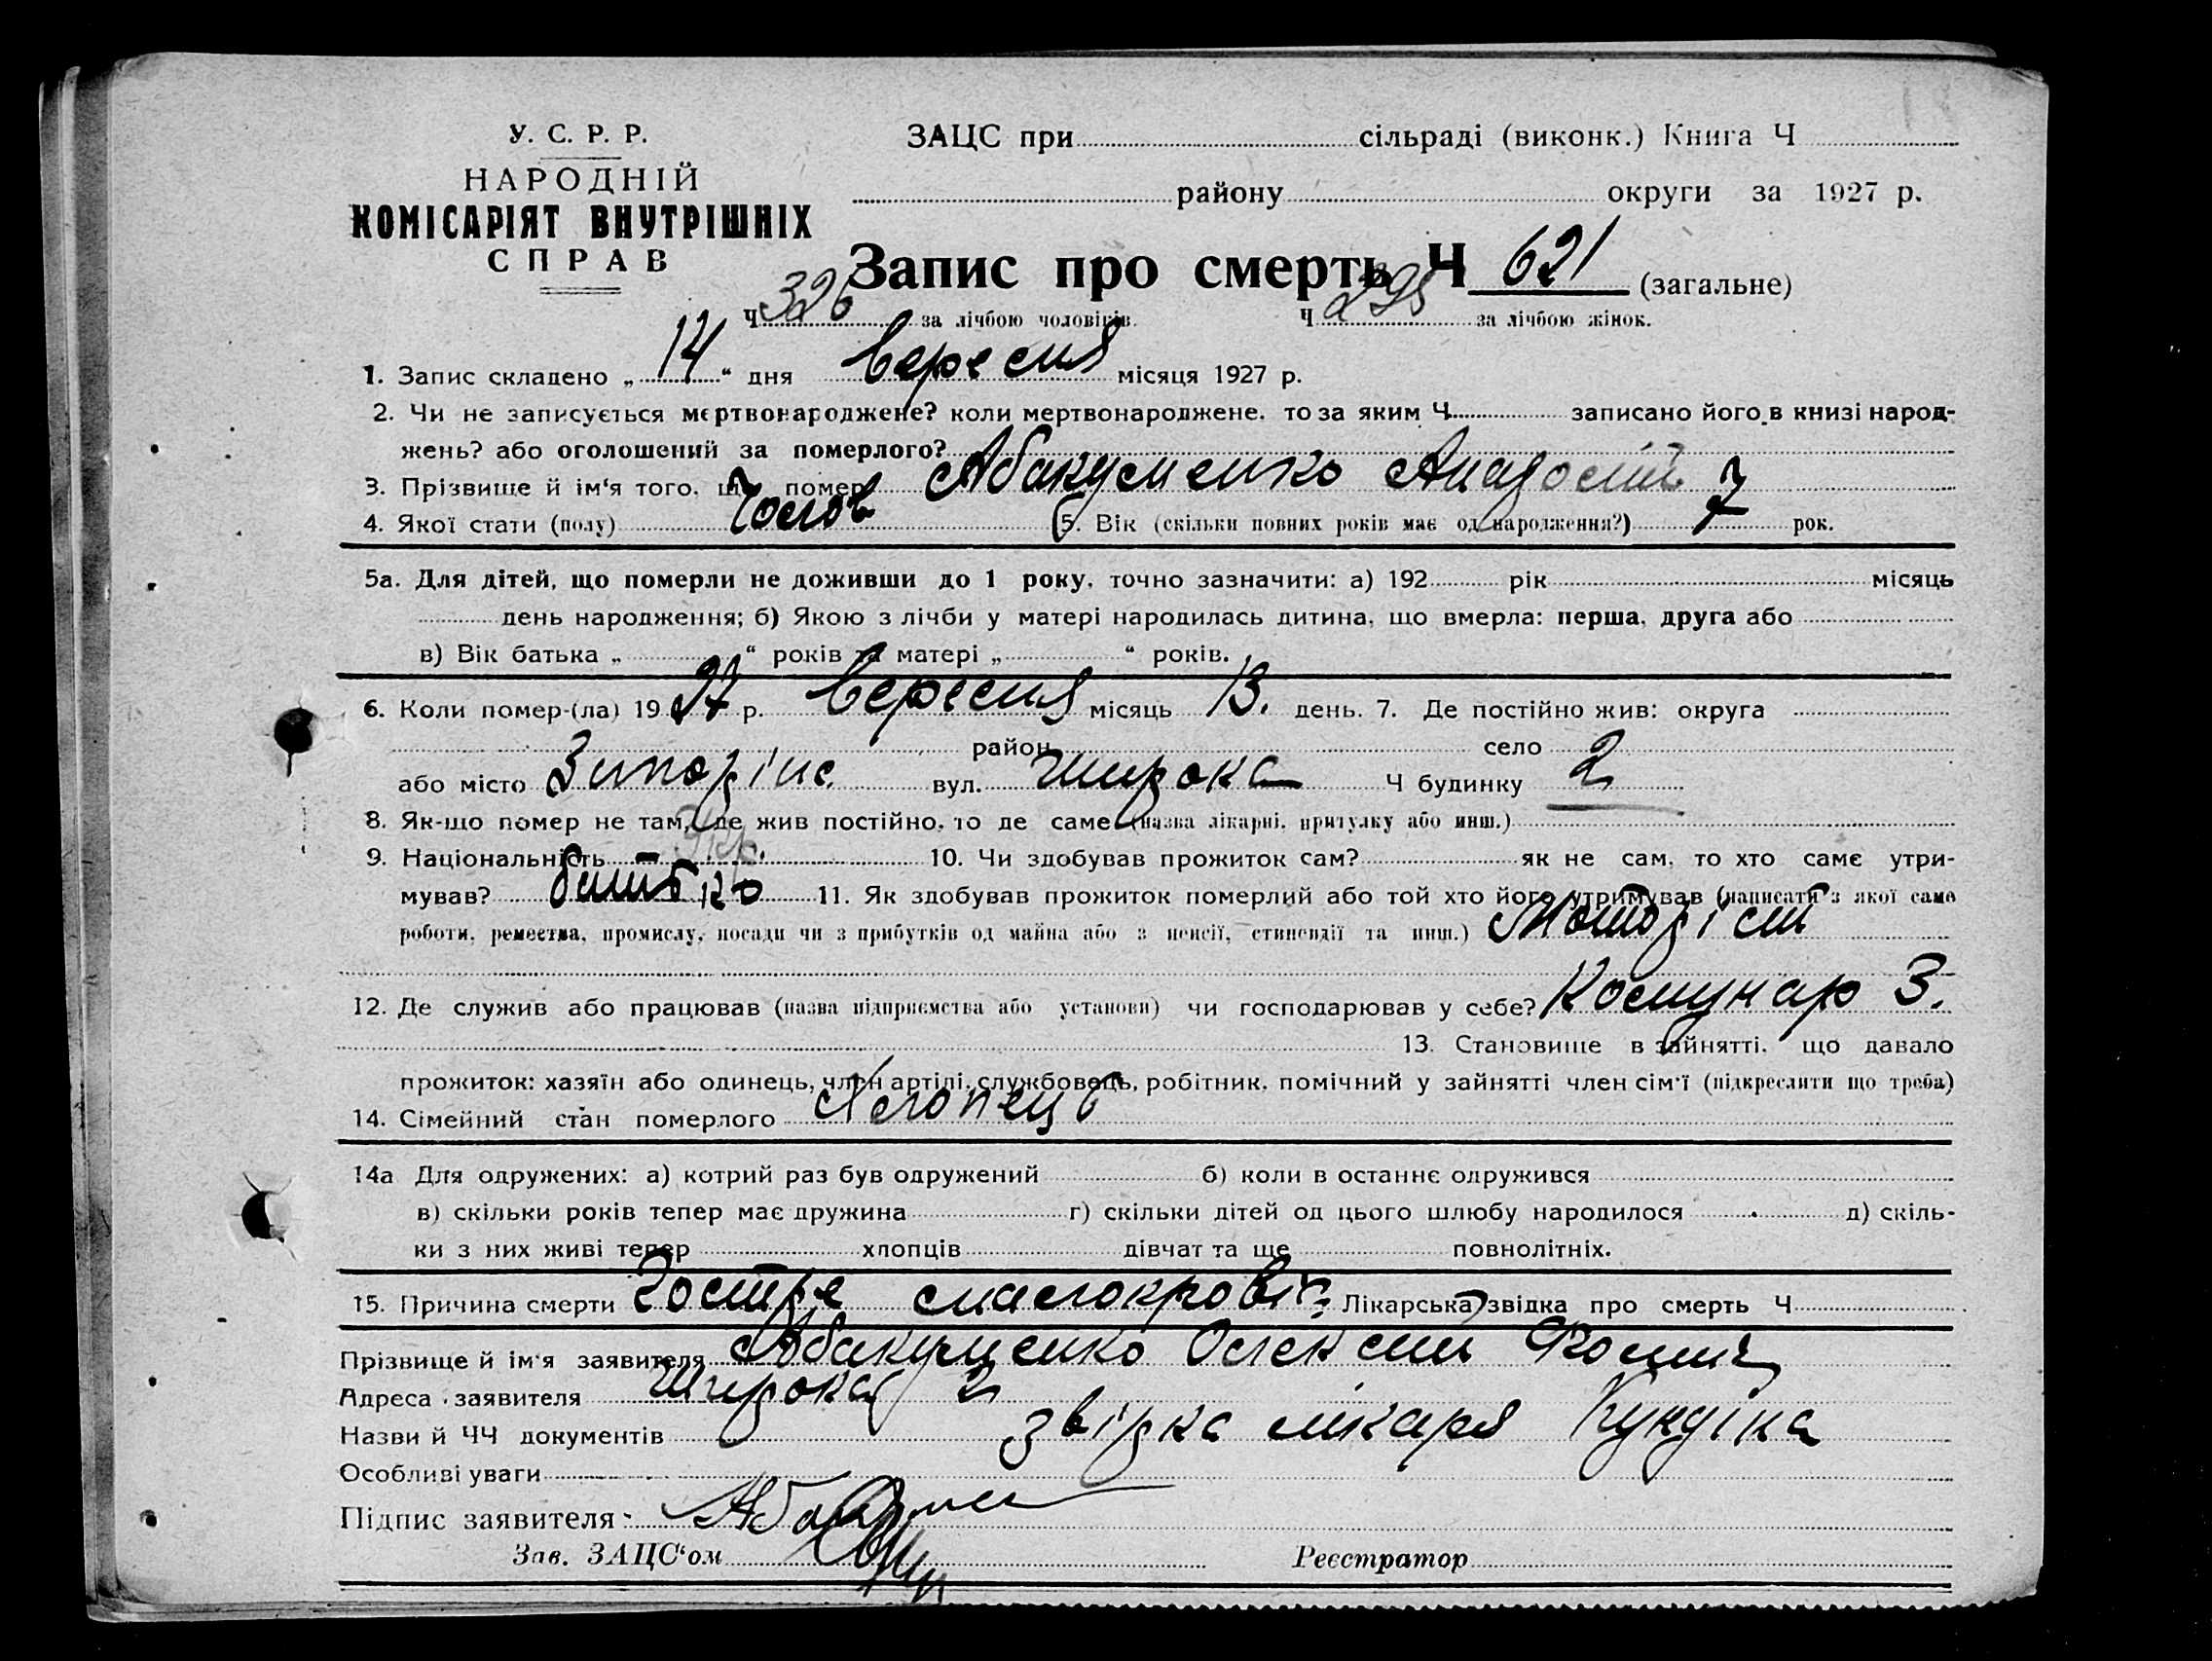 У. С. Р. Р.
НАРОДНІЙ
КОМІСАРІЯТ ВНУТРІШНІХ
СПРАВ
ЗАЦС при сільраді (виконк.) Книга Ч
району округи за 1927 р.
Запис про смерть Ч 621 (загальне)
Ч 326 за лічбою чоловіків. Ч 295 за лічбою жінок.
1. Запис складено „ 14 “ дня вересня місяця 1927 р.
2. Чи не записується мертвонароджене? коли мертвонароджене, то за яким Ч. записано його в книзі народ-
жень? або оголошений за померлого?
3. Прізвище й ім'я того, що помер Абакуменко
4. Якої стати (полу) Чолов 5. Вік (скільки повних років має од народження?) 7 рок.
5а. Для дітей, що померли не доживши до 1 року, точно зазначити: а) 192 рік місяць
день народження; б) Якою з лічби у матері народилась дитина, що вмерла: перша, друга або
в) Вік батька „ “ років та матері „ “ років.
6. Коли помер-(ла) 19 27 р. вересня місяць 13. день. 7. Де постійно жив: округа
район село
або місто Запоріже вул. Широка Ч будинку 2
8. Як-що помер не там, де жив постійно, то де саме (назва лікарні, притулку або инш.)
9. Національність Укр. 10. Чи здобував прожиток сам? як не сам, то хто саме утри-
мував? батько 11. Як здобував прожиток померлий або той хто його утримував (написати з якої саме
роботи, ремества, промислу, посади чи з прибутків од майна або з пенсії, стипендії та инш.) Моторіст
12. Де служив або працював (назва підприємства або установи) чи господарював у себе? Комунар З.
13. Становище в зайнятті, що давало
прожиток: хазяїн або одинець, член артілі, службовець, робітник, помічний у зайнятті член сім'ї (підкреслити що треба)
14. Сімейний стан померлого Хлопець
14а Для одружених: а) котрий раз був одружений б) коли в останнє одружився
в) скільки років тепер має дружина г) скільки дітей од цього шлюбу народилося д) скіль-
ки з них живі тепер хлопців дівчат та ще повнолітніх.
15. Причина смерти Гостре малокровіє Лікарська звідка про смерть Ч
Прізвище й ім'я заявителя Абакуменко Олексій Фомич
Адреса заявителя Широка 2
Назви й ЧЧ документів звідка лікаря Кундіна
Особливі уваги
Підпис заявителя:
Зав. ЗАЦС“ом Реєстратор